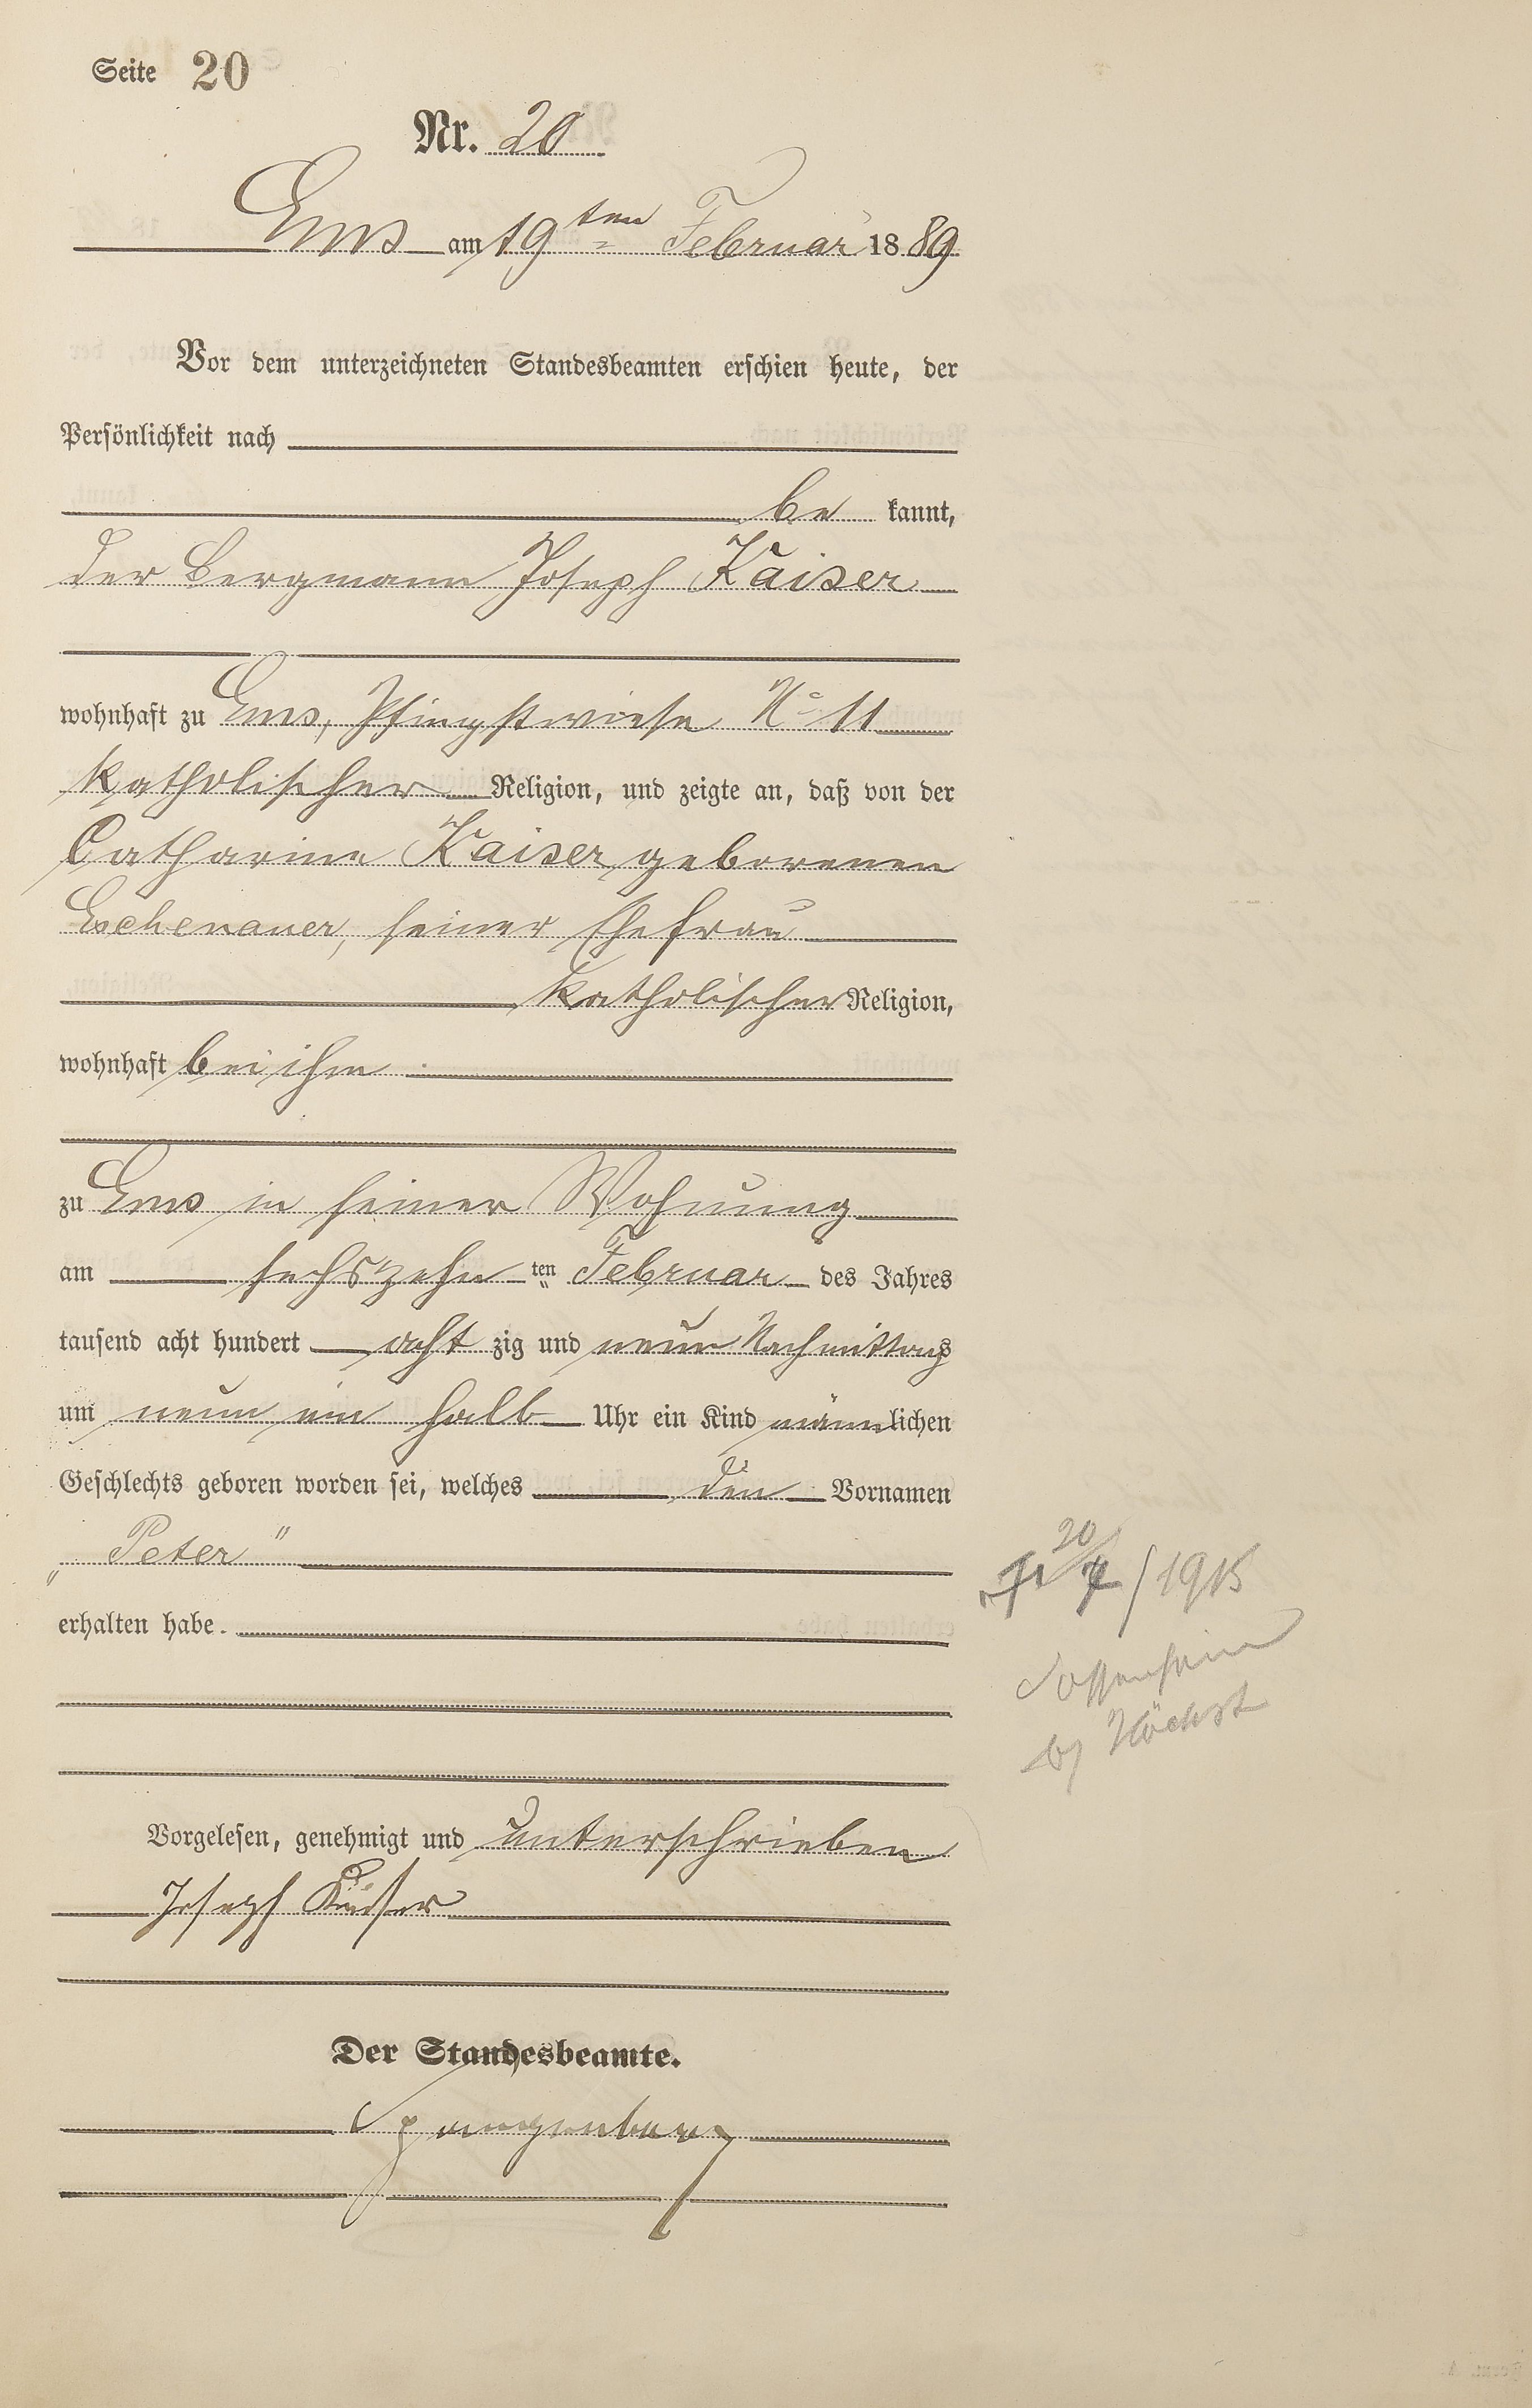 Seite 20
Nr. 20
Ems am 19ten Februar 1889
Vor dem unterzeichneten Standesbeamten erschien heute, der
Persönlichkeit nach
be kannt,
der Bergmann Joseph Kaiser
wohnhaft zu Ems, Pfingstwiese No 11
katholischer Religion, und zeigte an, daß von der
Catharina Kaiser geborenen
Eschenauer, seiner Ehefrau
katholischer Religion,
wohnhaft bei ihm
zu Ems in seiner Wohnung
am sechszehn ten Februar des Jahres
tausend acht hundert acht zig und neun Nachmittags
um neun ein halb Uhr ein Kind männlichen
Geschlechts geboren worden sei, welches den Vornamen
„Peter"
20
/ 1915
erhalten habe.
Sossenheim
b/ Höchst
Vorgelesen, genehmigt und unterschrieben
Joseph Kaiser
Der Standesbeamte.
Spangenberg